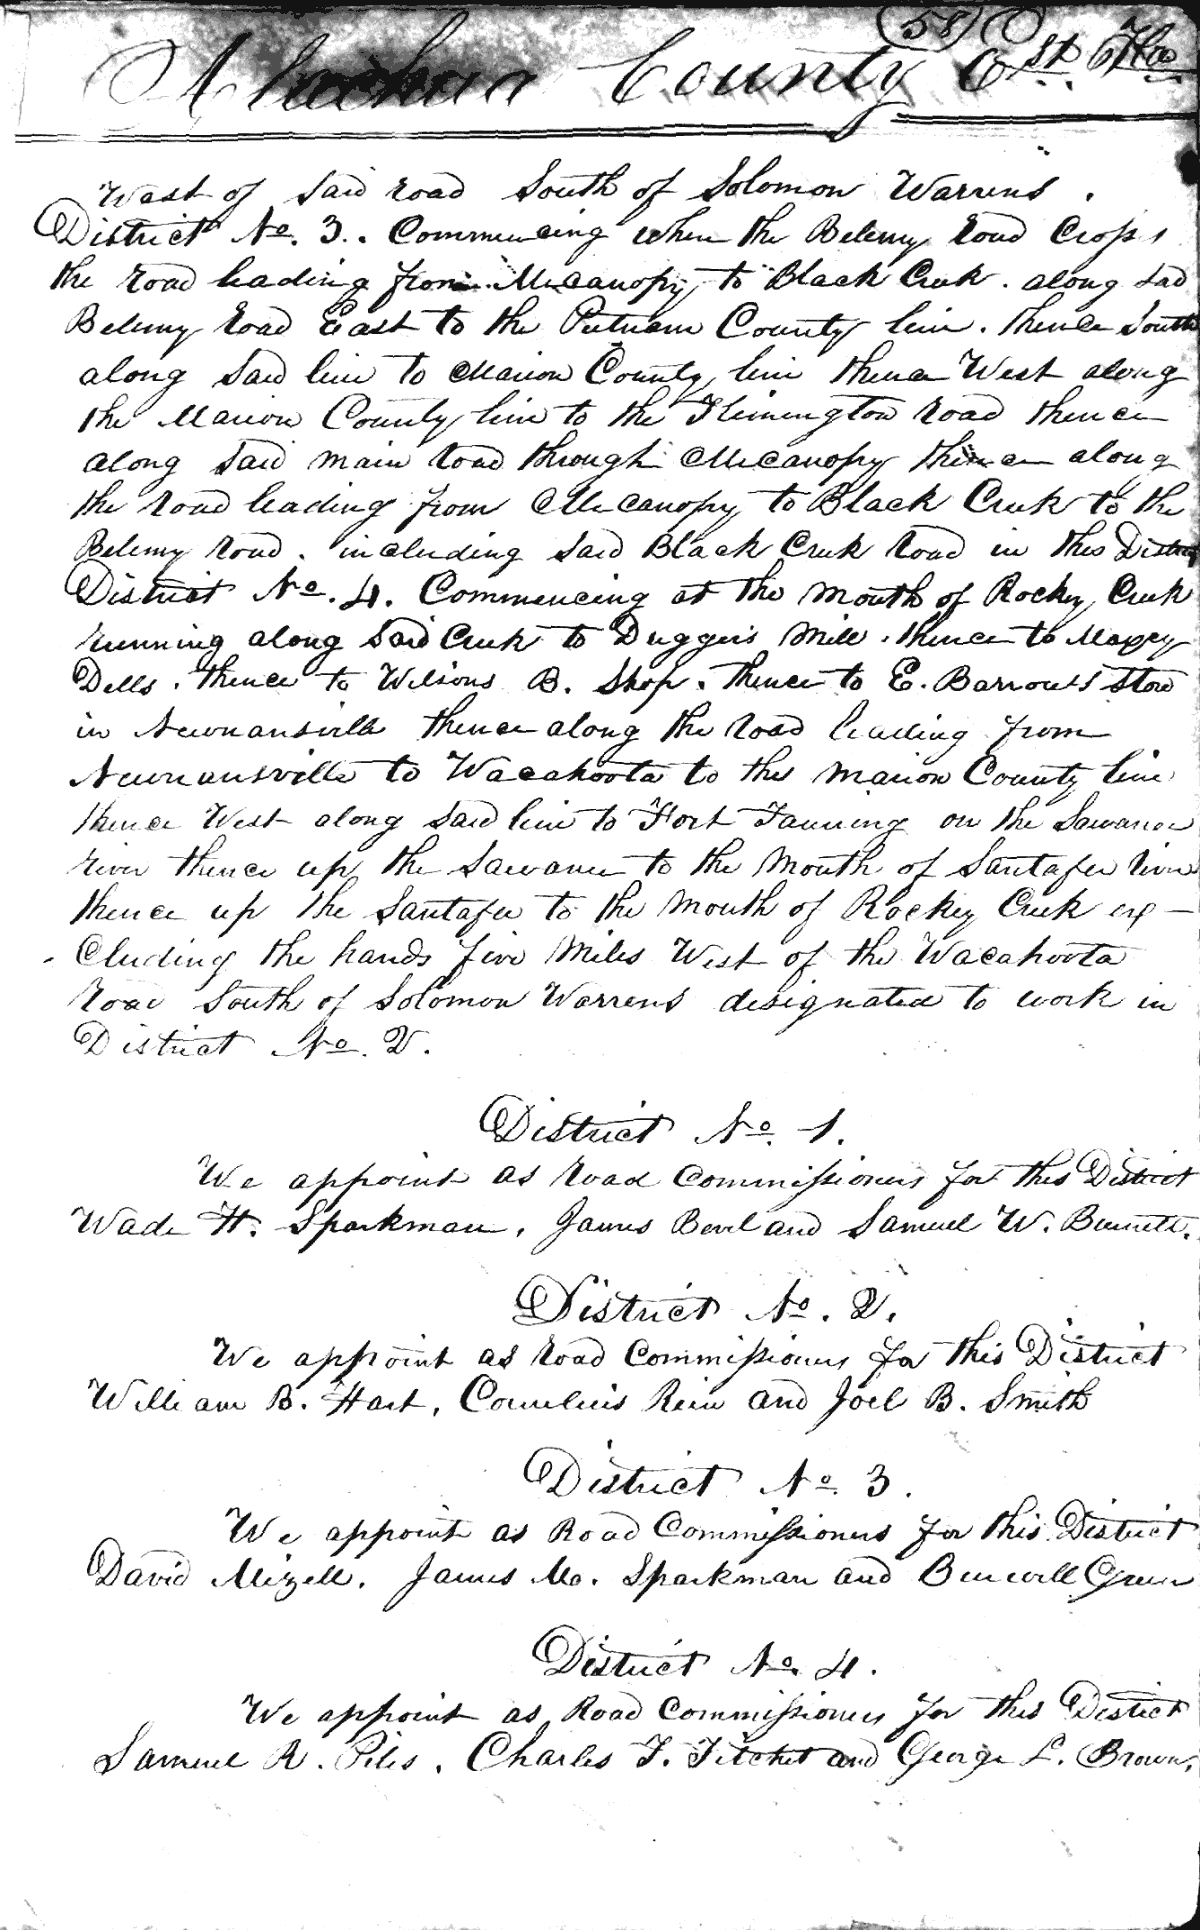 58
Alachua County Est. Fla.
West of said road South of Solomon Warrens.
District No. 3. Commencing when the Belemy road Cross
the road leading from Micanopy to Black Creek. along sad
Belemy road East to the Putnam County line. thence South
along said line to Marion County line thence West along
the Marion County line to the Flimington road thence
along said main road through Micanopy thence along
the road leading from Micanopy to Black Creek to the
Belemy road. including said Black Creek road in this District
District No. 4. Commencing at the mouth of Rocky Creek
running along said Creek to Duggers Mill. thence to Maxey
Dells. thence to Wilsons B. Shop. thence to E. Barrow's store
in Newnansville thence along the road leading from
Newnansville to Wacahoota to the Marion County line
thence West along said line to Fort Fanning on the Sawanee
river thence up the Sawanee to the Mouth of Santafee river
thence up the Santafee to the Mouth of Rockey Creek ex-
cluding the hands five Miles West of the Wacahoota
road South of Solomon Warrens designated to work in
District No. 2.
District No. 1.
We appoint as road Commissioners for this District
Wade H. Sparkman, James Bevl and Samuel W. Burnett.
District No. 2.
We appoint as road Commissioners for this District
William B. Hart, Cornelius Rain and Joel B. Smith
District No. 3.
We appoint as Road Commissioners for this District
David Mizell. James Mc. Sparkman and Burwell Green
District No. 4.
We appoint as Road Commissioners for this District
Samuel R. Piles. Charles F. Fitchet and George L. Brown.